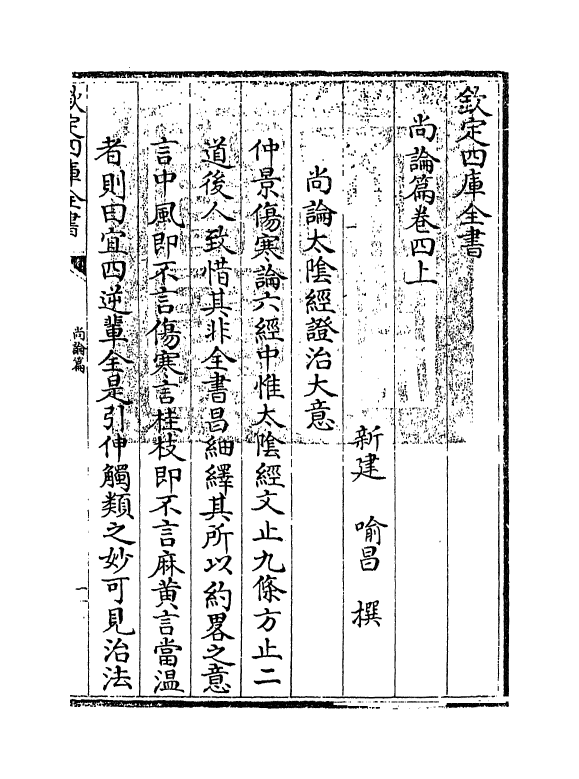 欽定四庫全書
尚論篇卷四上
新建　喻昌　撰
尚論太陰經證治大意
仲景傷寒論六經中惟太陰經文止九條方止二
道後人致惜其非全書昌細繹其所以約畧之意
言中風即不言傷寒言桂枝即不言麻黄言當温
者則曰宜四逆輩全是引伸觸類之妙可見治法
欽定四庫全書
尚論篇
一